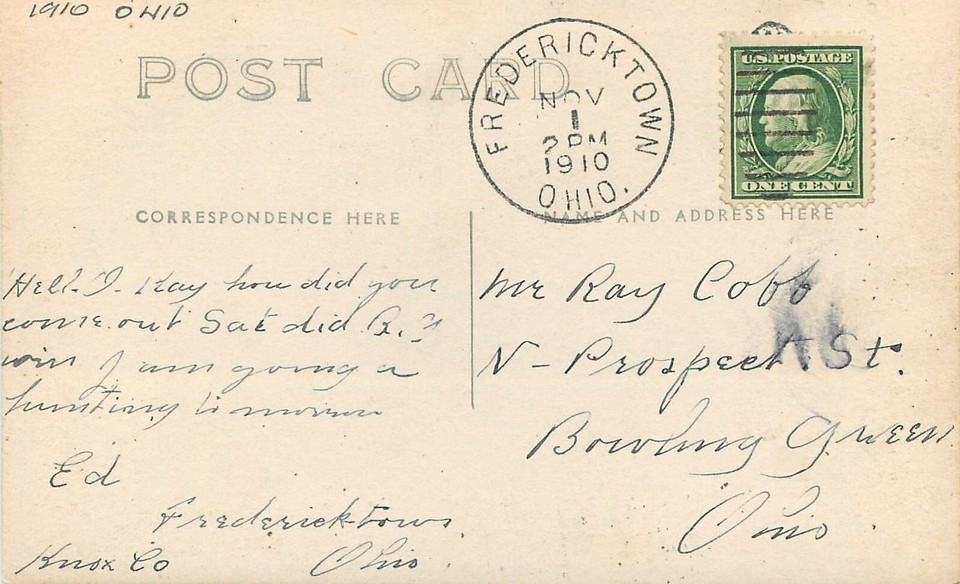 1910 OHIO
POST CARD
FREDERICKTOWN
NOV
1
2 PM
1910
OHIO.
U.S. POSTAGE
ONE CENT
CORRESPONDENCE HERE
NAME AND ADDRESS HERE
Ray how did you
come out Sat did B.
win I am going a
hunting to morrow
Ed
Fredericktown
Knox Co Ohio
Mr Ray Cobb
N- Prospect St.
Bowling Green
Ohio